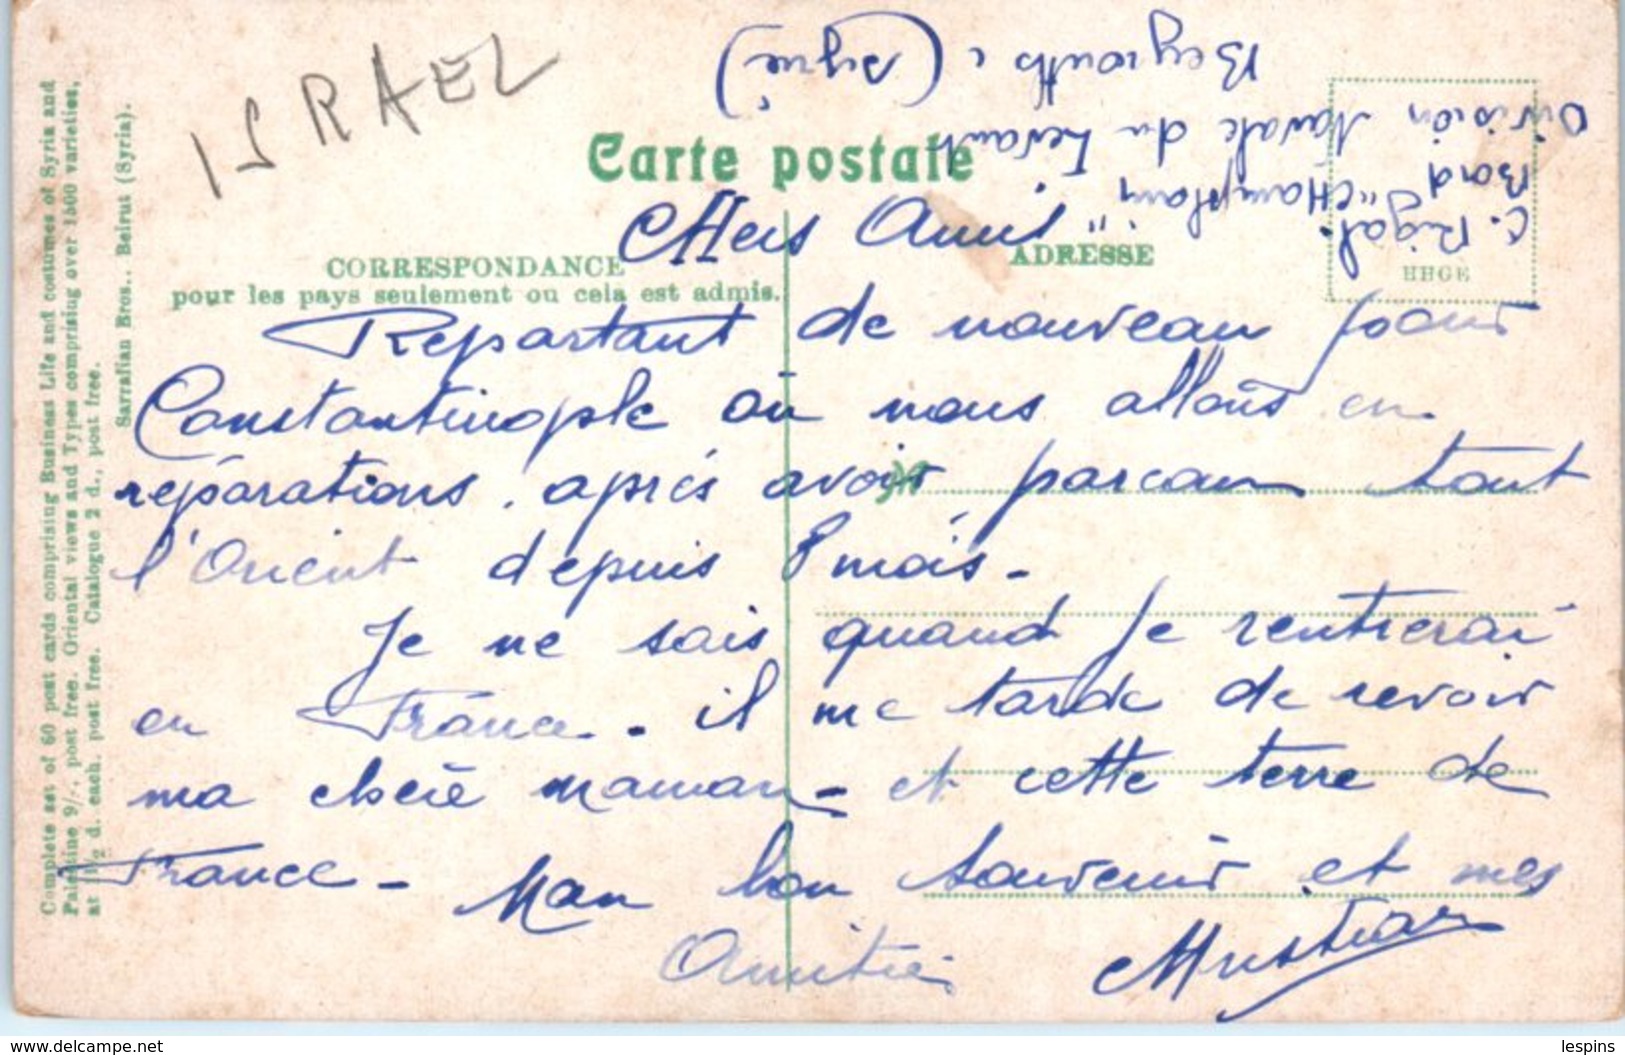 ISRAEL
C. Rigal.
Bord "CHamplain"
Division Navale du Levant
Beyrouth (syrie)
Carte postale
CHers Amis
CORRESPONDANCE
ADRESSE
pour les pays seulement ou cela est admis.
HHGE
Repartant de nouveau pour
Constantinople où nous allons en
réparations, après avoir parcouru tout
l'Orient depuis 8 mois -
Je ne sais quand je rentrerai
en France - il me tarde de revoir
ma chère maman - et cette terre de
France - Mon bon souvenir et mes
Amitiés
Complete set of 60 post cards comprising Business Life and costumes of Syria and
Palestine 9/-, post free. Oriental views and Types comprising over 1500 varieties,
at 1½ d. each. post free. Catalogue 2 d., post free.
Sarrafian Bros.. Beirut (Syria).
www.delcampe.net
lespins